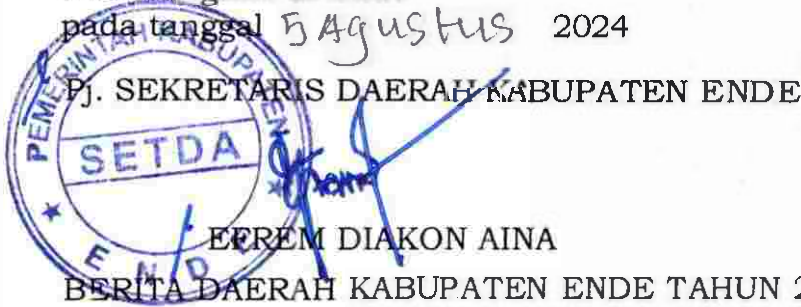 pada tanggal 5 Agustus 2024
Pj. SEKRETARIS DAERAH KABUPATEN ENDE
PEMERINTAH KABUPATEN
SETDA
ENDE
EFREM DIAKON AINA
BERITA DAERAH KABUPATEN ENDE TAHUN 2